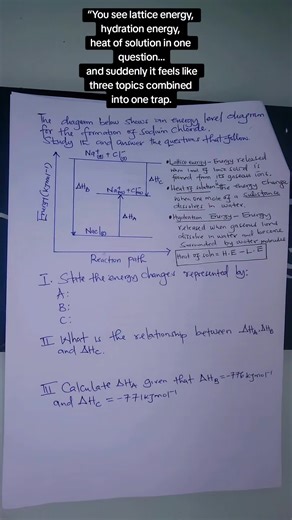 “You see lattice energy,
hydration energy,
heat of solution in one
question...
and suddenly it feels like
three topics combined
into one trap.
The diagram below shows an energy level diagram
for the formation of Sodium Chloride.
Study it and answer the questions that follows
Energy (kJmol⁻¹)
Na⁺(g) + Cl⁻(g)
ΔHB
ΔHC
Na⁺(aq) + Cl⁻(aq)
ΔHA
NaCl(s)
Reaction path
• Lattice energy - Energy released
when 1mol of ionic solid is
formed from its gaseous ions.
• Heat of solution - The energy change
when one mole of a substance
dissolves in water.
• Hydration Energy - Energy
released when gaseous ions
dissolve in water and become
surrounded by water molecules
Heat of soln = H.E - L.E
I. State the energy changes represented by:
A:
B:
C:
II What is the relationship between ΔHA, ΔHB
and ΔHC.
III Calculate ΔHA given that ΔHB = -776kJmol⁻¹
and ΔHC = -771kJmol⁻¹